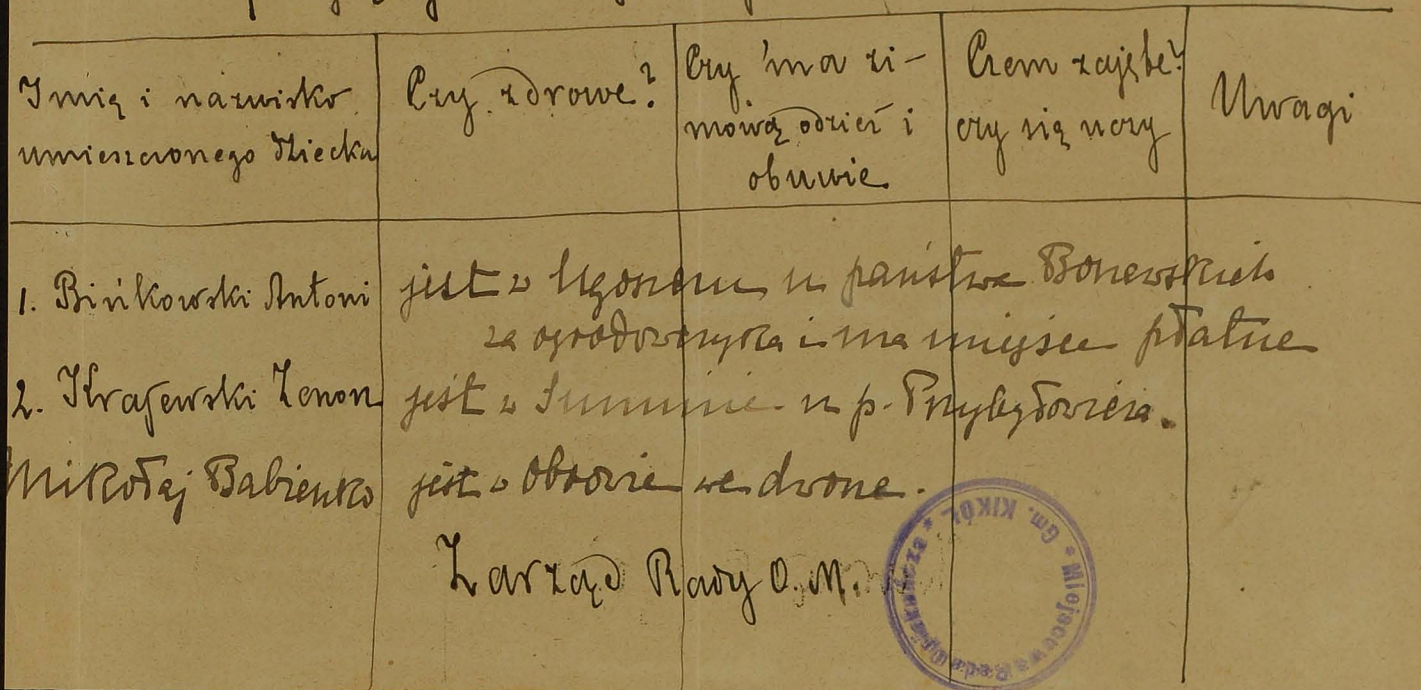 Imię i nazwisko
umieszczonego dziecka
Czy zdrowe?
Czy ma zi-
mową odzież i
obuwie
Czem zajęte?
czy się uczy
Uwagi
1. Bińkowski Antoni
jest w Ugoszczu u państwa Borzewskich
za ogrodowczyka i ma miejsce płatne
2. Krajewski Zenon
jest w Suminie u p.
Mikołaj Babienko
jest w Obrowie we dworze.
Zarząd Rady O. M.
Miejscowa Rada Opiekuńcza * Gm. KIKÓŁ *